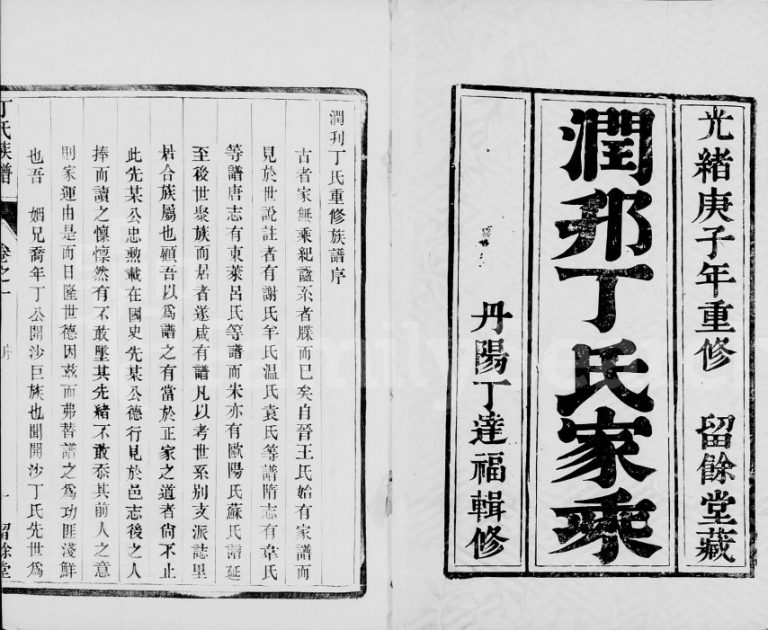 光緒庚子年重修　留餘堂藏
潤邦丁氏家乘
丹陽丁達福輯修
潤州丁氏重修族譜序
古者家無乘紀諡系者牒而已矣自晉王氏始有家譜而
見於世說註者有謝氏羊氏温氏袁氏等譜隋志有韋氏
等譜唐志有東萊呂氏等譜而宋亦有歐陽氏蘇氏譜延
至後世聚族而居者遂咸有譜凡以考世系别支派誌里
居合族屬也顧吾以爲譜之有當於正家之道者尙不止
此先某公忠勲載在國史先某公德行見於邑志後之人
捧而讀之懍懍然有不敢墜其先緒不敢忝其前人之意
則家運由是而日隆世德因兹而弗替譜之爲功匪淺鮮
也吾　姻兄喬年丁公開沙巨族也聞開沙丁氏先世爲
丁氏族譜　卷之一　一　留餘堂